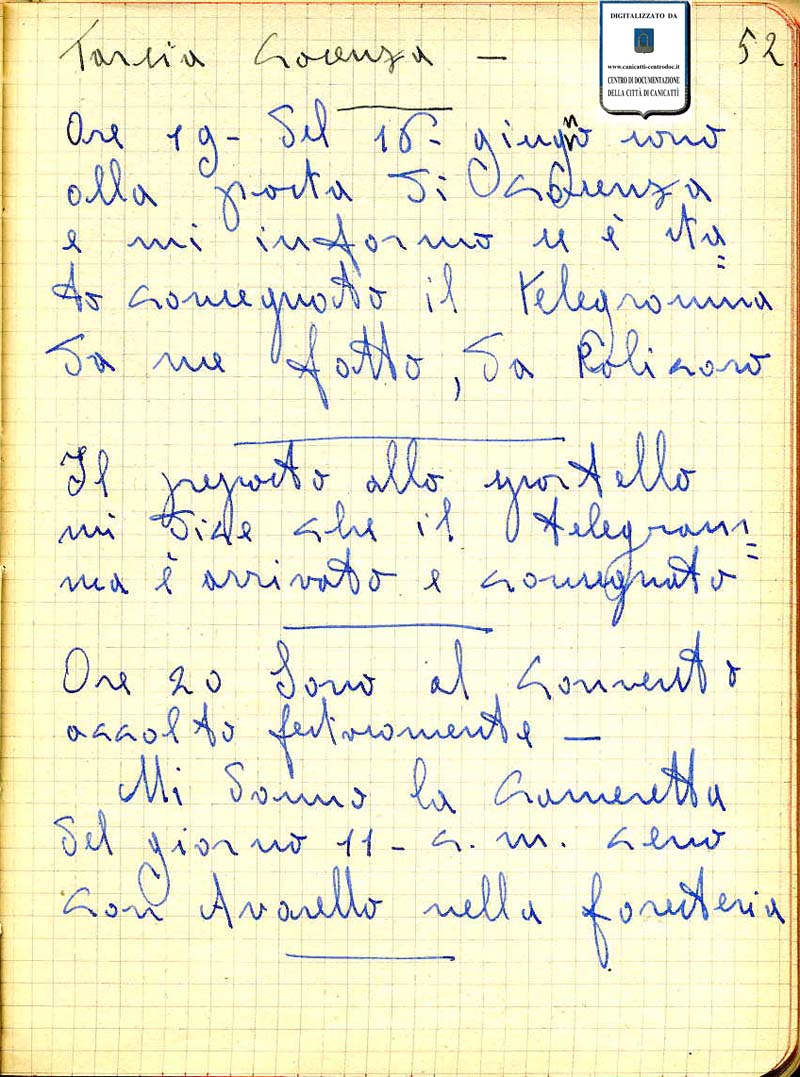 DIGITALIZZATO DA
www.canicatti-centrodoc.it
CENTRO DI DOCUMENTAZIONE
DELLA CITTÀ DI CANICATTÌ
52
Cosenza —
Ore 19 - del 16 - giugno sono
alla posta di Cosenza
e mi informo se è sta=
to consegnato il telegramma
da me fatto, da Policoro
Il preposto allo sportello
mi dice che il telegram=
ma è arrivato e consegnato
Ore 20 Sono al convento
accolto festosamente —
Mi danno la cameretta
del giorno 11 - c. m. ceno
con Avarello nella foresteria